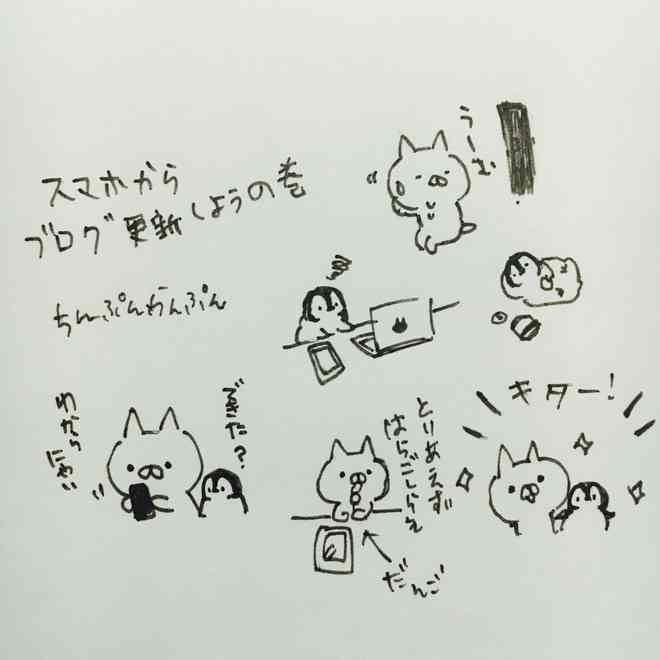 スマホから
ブログ更新しようの巻
うーむ
ちんぷんかんぷん
できた?
わから
にゃい
とりあえず
はらごしらえ
だんご
キター!